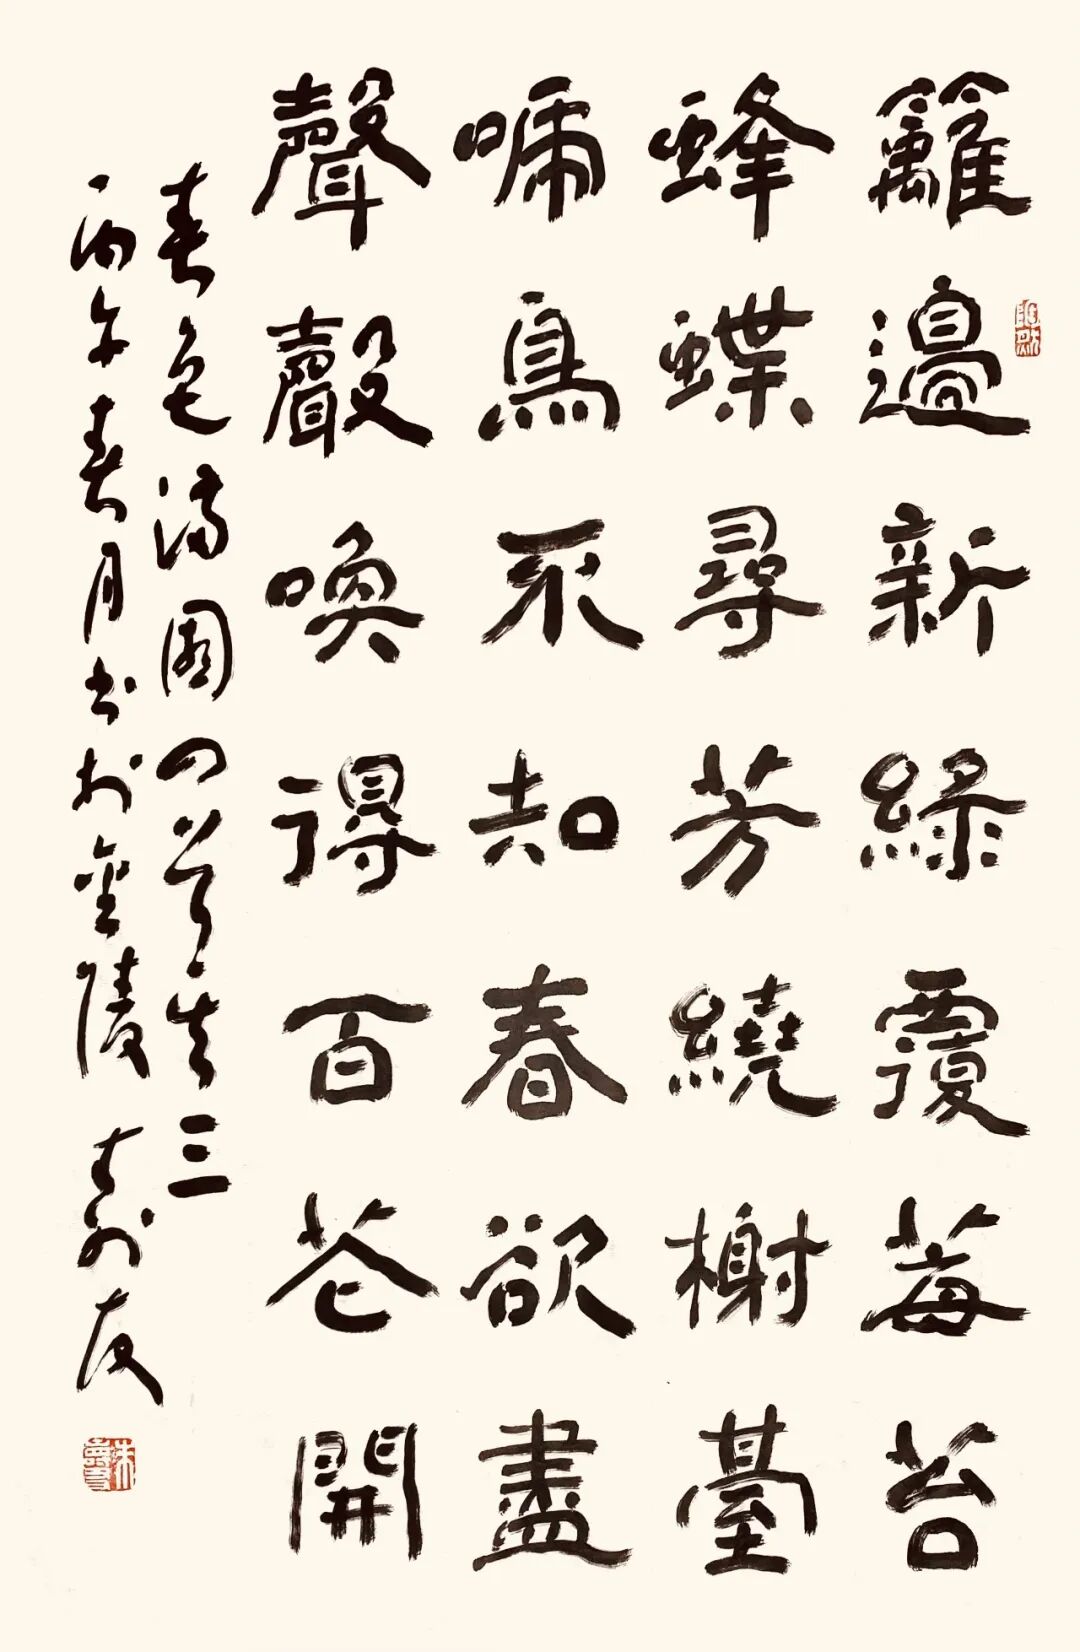 籬邊新綠覆莓苔
蜂蝶尋芳繞榭臺
啼鳥不知春欲盡
聲聲喚得百花開
春色滿園四首其三
丙午春月書於金陵 壽友
朱壽友